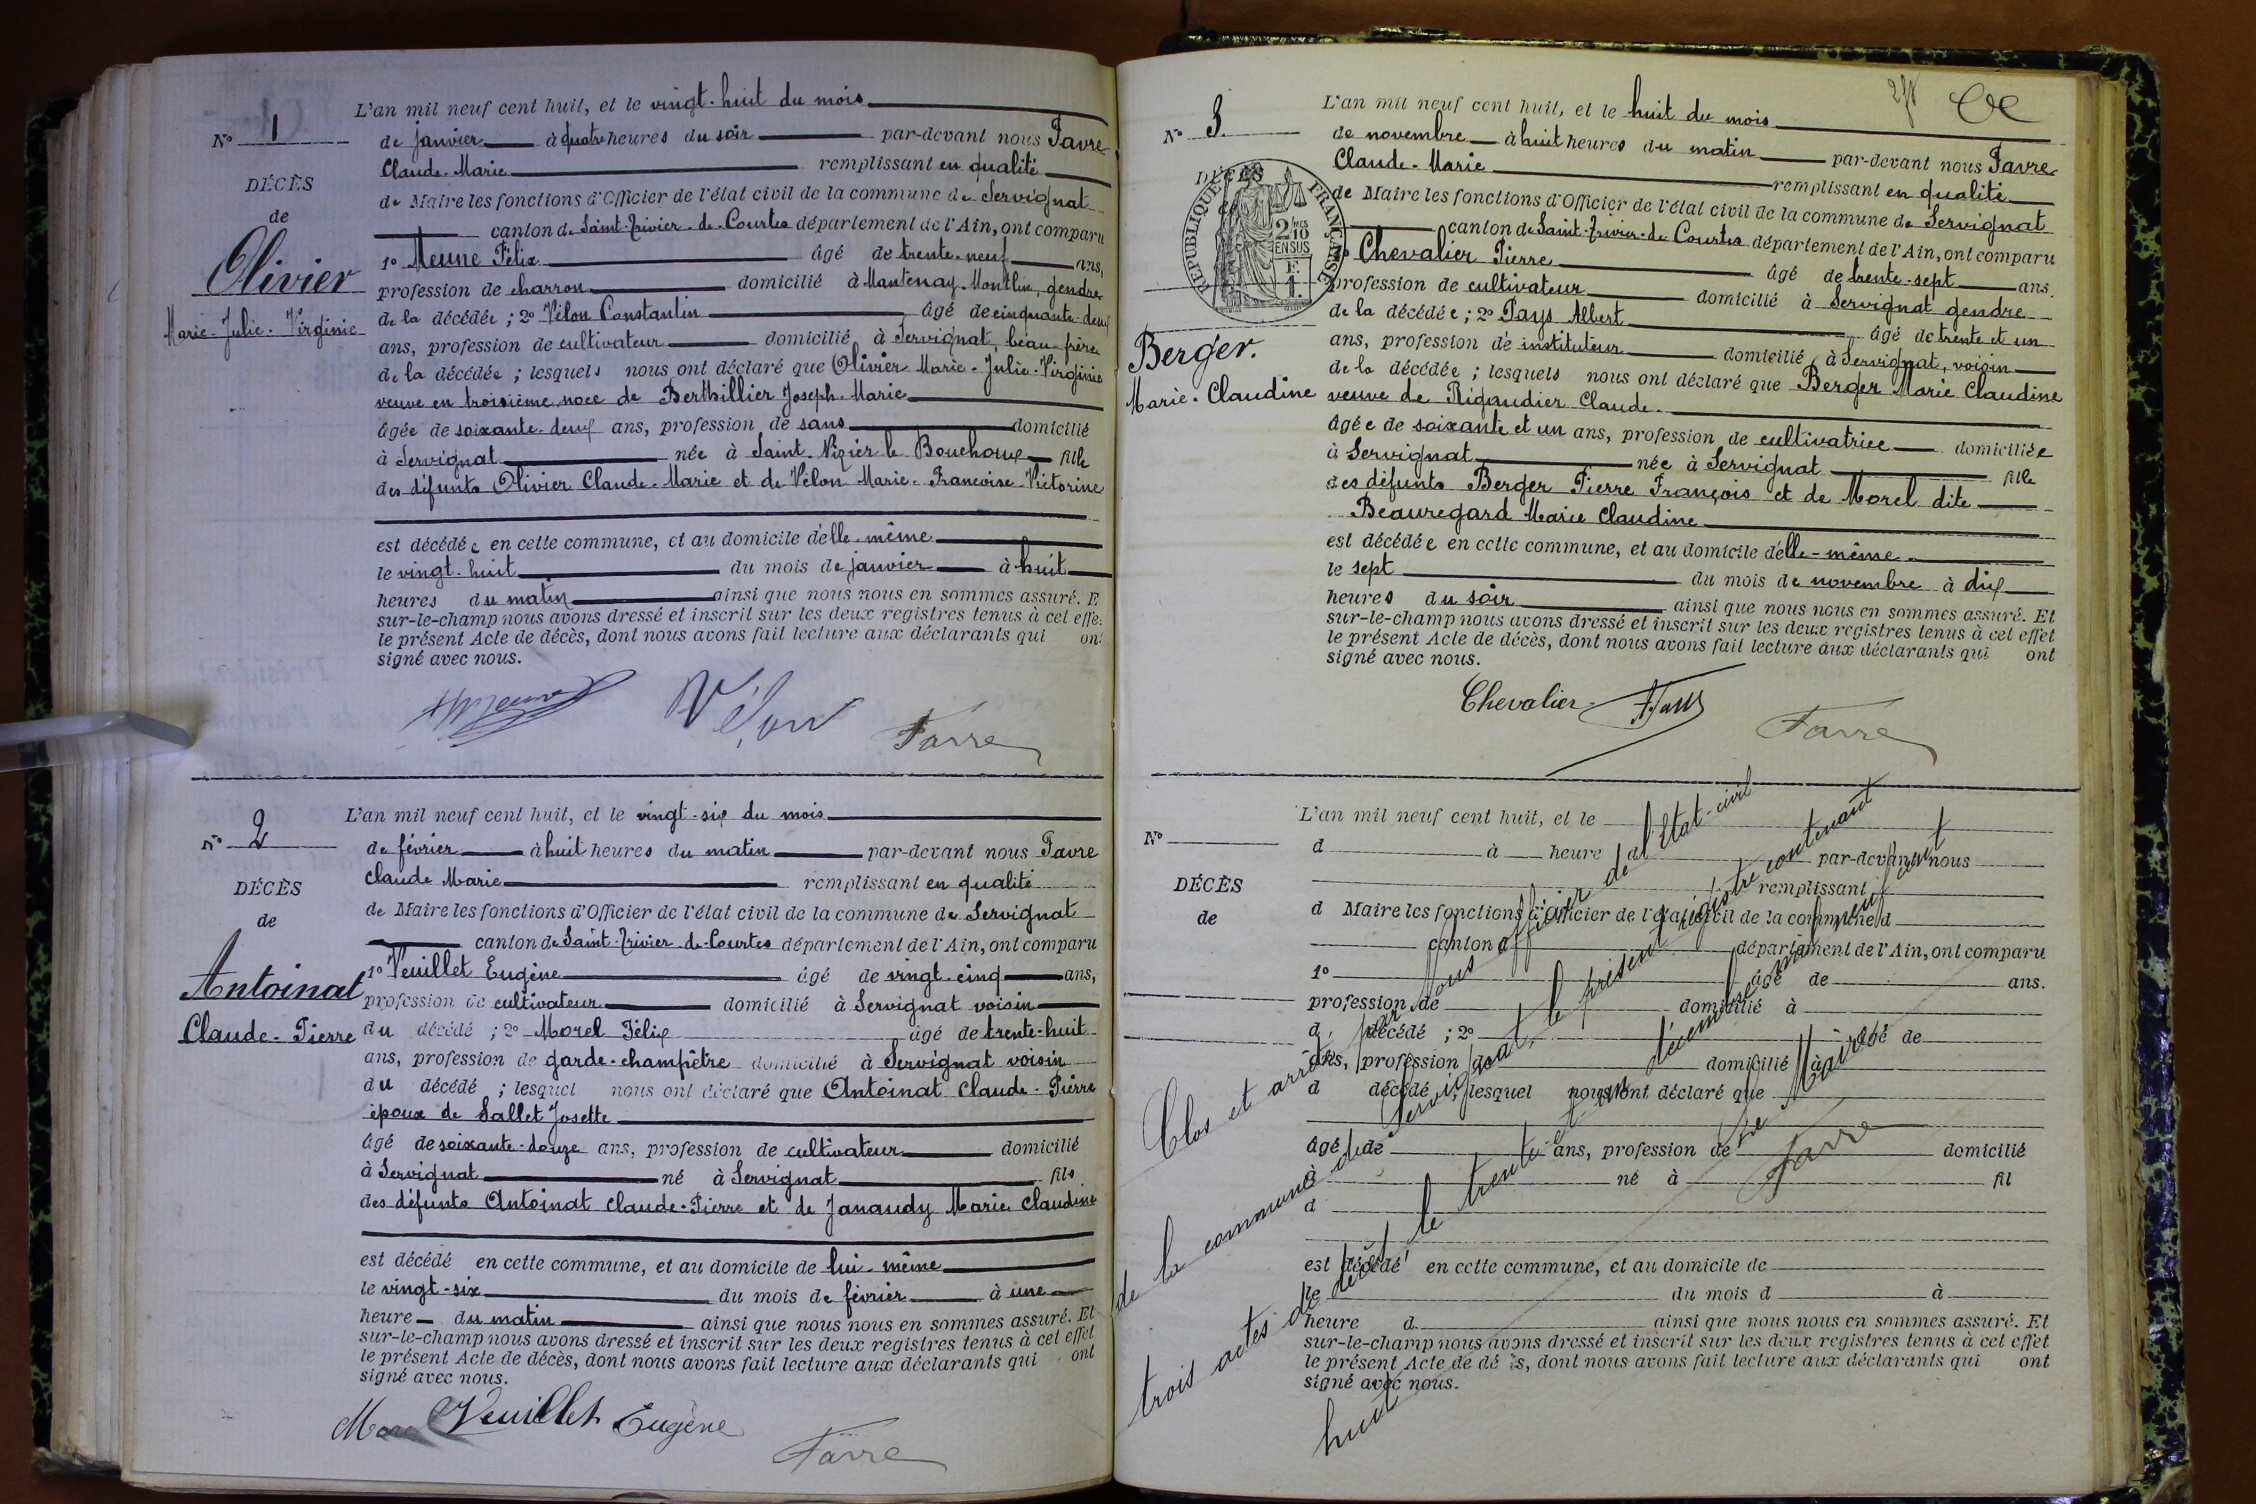 L'an mil neuf cent huit, et le vingt-huit du mois
N° 1
de janvier à quatre heures du soir par-devant nous Favre
Claude-Marie remplissant en qualité
DÉCÈS
de Maire les fonctions d'Officier de l'état civil de la commune de Servignat
de
canton de Saint-Trivier-de-Courtes département de l'Ain, ont comparu
Olivier
Marie-Julie-Virginie
1° Meune Félix âgé de trente-neuf ans,
profession de charron domicilié à Mantenay-Montlin, gendre
de la décédée ; 2° Vélon Constantin âgé de cinquante-deux
ans, profession de cultivateur domicilié à Servignat, beau-frère
de la décédée ; lesquels nous ont déclaré que Olivier Marie-Julie-Virginie
veuve en troisième noce de Berthillier Joseph-Marie
âgée de soixante-deux ans, profession de sans domicilié
à Servignat née à Saint-Nizier le Bouchoux fille
des défunts Olivier Claude-Marie et de Vélon Marie-Françoise-Victorine
est décédée en cette commune, et au domicile d'elle-même
le vingt-huit du mois de janvier à huit
heures du matin ainsi que nous nous en sommes assuré. E
sur-le-champ nous avons dressé et inscrit sur les deux registres tenus à cet effe
le présent Acte de décès, dont nous avons fait lecture aux déclarants qui ont
signé avec nous.
Vélon Favre
L'an mil neuf cent huit, et le vingt-six du mois
N° 2
de février à huit heures du matin par-devant nous Favre
Claude Marie remplissant en qualité
DÉCÈS
de Maire les fonctions d'Officier de l'état civil de la commune de Servignat
de
canton de Saint-Trivier-de-Courtes département de l'Ain, ont comparu
Antoinat
Claude-Pierre
1° Veuillet Eugène âgé de vingt-cinq ans,
profession de cultivateur domicilié à Servignat voisin
du décédé ; 2° Morel Félix âgé de trente-huit
ans, profession de garde-champêtre domicilié à Servignat voisin
du décédé ; lesquel nous ont déclaré que Antoinat Claude-Pierre
époux de Sallet Josette
âgé de soixante-douze ans, profession de cultivateur domicilié
à Servignat né à Servignat fils
des défunts Antoinat Claude-Pierre et de Janaudy Marie Claudine
est décédé en cette commune, et au domicile de lui-même
le vingt-six du mois de février à une
heure du matin ainsi que nous nous en sommes assuré. Et
sur-le-champ nous avons dressé et inscrit sur les deux registres tenus à cet effet
le présent Acte de décès, dont nous avons fait lecture aux déclarants qui ont
signé avec nous.
Veuillet Eugène
Favre
L'an mil neuf cent huit, et le huit du mois
N° 3.
de novembre à huit heures du matin par-devant nous Favre
Claude-Marie remplissant en qualité
DÉCÈS
RÉPUBLIQUE FRANÇAISE
2/10 EN SUS
de Maire les fonctions d'Officier de l'état civil de la commune de Servignat
canton de Saint-Trivier-de-Courtes département de l'Ain, ont comparu
Chevalier Pierre âgé de trente-sept ans.
profession de cultivateur domicilié à Servignat gendre
de la décédée ; 2° Pays Albert âgé de trente et un
Berger.
Marie-Claudine
ans, profession de instituteur domicilié à Servignat, voisin
de la décédée ; lesquels nous ont déclaré que Berger Marie Claudine
veuve de Rigaudier Claude.
âgée de soixante et un ans, profession de cultivatrice domiciliée
à Servignat née à Servignat fille
des défunts Berger Pierre François et de Morel dite
Beauregard Marie Claudine
est décédée en cette commune, et au domicile d'elle-même.
le sept du mois de novembre à dix
heures du soir ainsi que nous nous en sommes assuré. Et
sur-le-champ nous avons dressé et inscrit sur les deux registres tenus à cet effet
le présent Acte de décès, dont nous avons fait lecture aux déclarants qui ont
signé avec nous.
Chevalier Favre
L'an mil neuf cent huit, et le
N°
d à heure d par-devant nous
remplissant
DÉCÈS
d Maire les fonctions d'Officier de l'état civil de la commune d
de
canton d département de l'Ain, ont comparu
1° âgé de ans.
profession de domicilié à
d décédé ; 2° âgé de
ans, profession de domicilié à
d décédé ; lesquel nous ont déclaré que
âgé de ans, profession de domicilié
à né à fil
d
est décédé en cette commune, et au domicile de
le du mois d à
heure d ainsi que nous nous en sommes assuré. Et
sur-le-champ nous avons dressé et inscrit sur les deux registres tenus à cet effet
le présent Acte de décès, dont nous avons fait lecture aux déclarants qui ont
signé avec nous.
Clos et arrêté par nous officier de l'état-civil
de la commune de Servignat, le présent registre contenant
trois actes de décès, le trente et un décembre mil neuf cent
huit
Le Maire
Favre